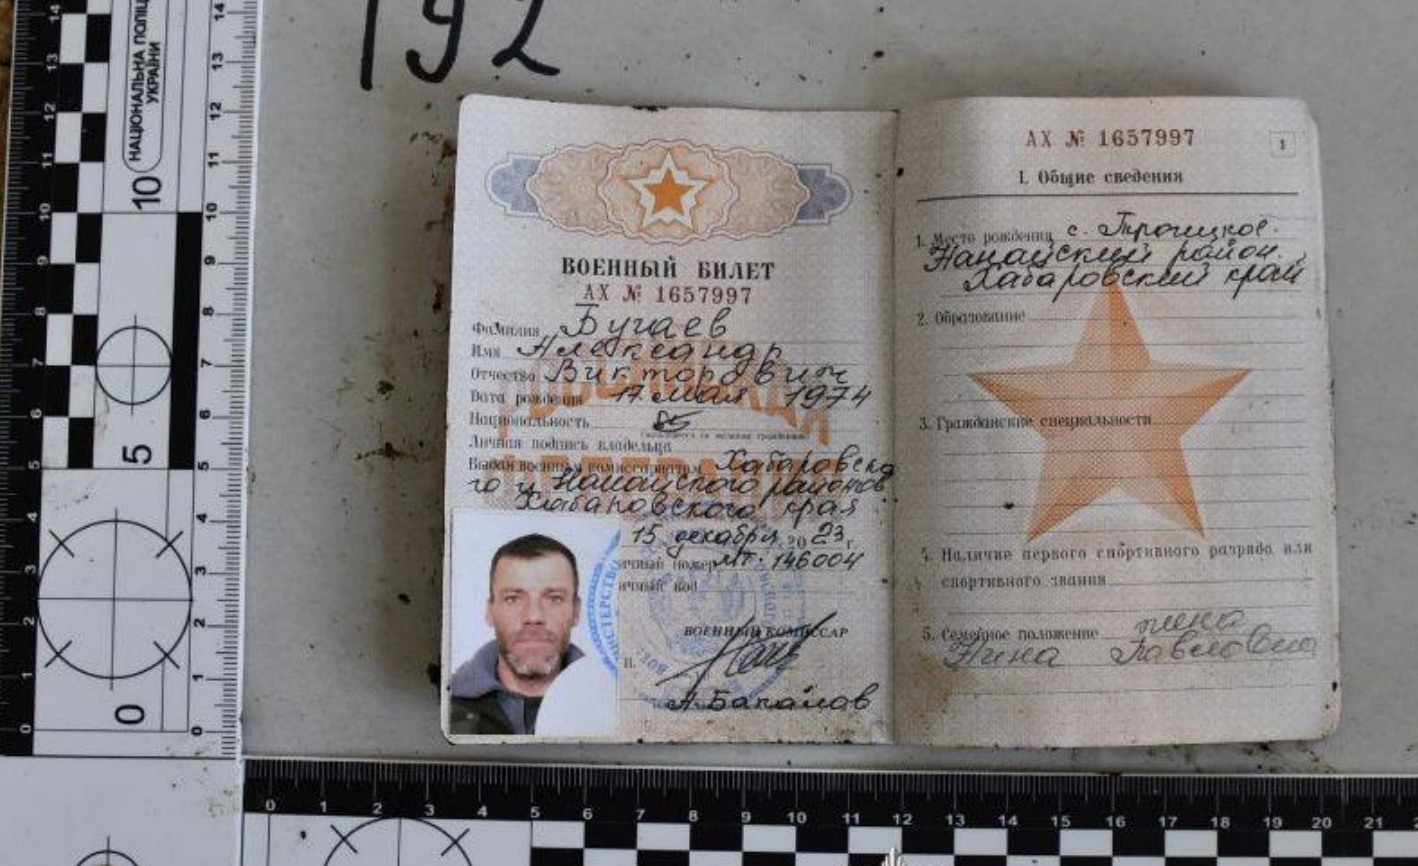 192
НАЦІОНАЛЬНА ПОЛІЦІЯ
УКРАЇНИ
14
13
12
11
10
9
8
7
6
5
4
3
2
1
0
14
13
12
11
10
9
8
7
6
5
4
3
2
1
0
10
5
0
ВОЕННЫЙ БИЛЕТ
АХ № 1657997
Фамилия Бугаев
Имя Александр
Отчество Викторович
Дата рождения 17 мая 1974
Национальность
Личная подпись владельца
Выдан военным комиссариатом Хабаровско
го и Нанайского районов
Хабаровского края
15 декабря 2023 г.
личный номер МТ-146004
личный код
ВОЕННЫЙ КОМИССАР
МИНИСТЕРСТВО
П.
А. Бакалов
АХ № 1657997
1
I. Общие сведения
1. Место рождения с. Троицкое.
Нанайский район.
Хабаровский край
2. Образование
3. Гражданские специальности
4. Наличие первого спортивного разряда или
спортивного звания
5. Семейное положение жена
Нина Павловна
0 1 2 3 4 5 6 7 8 9 10 11 12 13 14 15 16 17 18 19 20 21